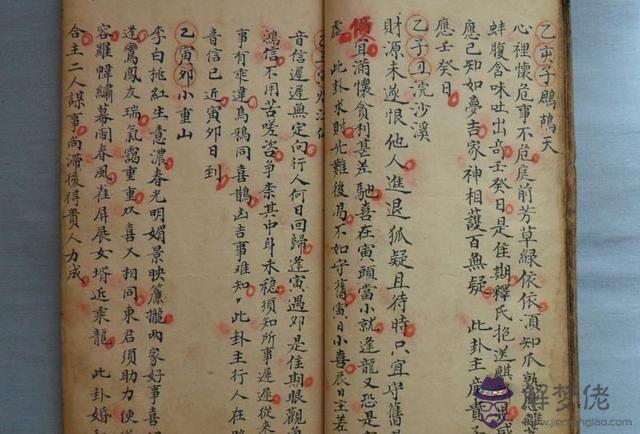 乙寅子鵬鶴天
心裡懷危事不危庭前芳草綠依依須知爪熟離
蚌腹含味吐出奇壬癸日是佳期釋氏抱送麒是威
應已知如夢吉家神相護百無疑 此卦主産貴子
應壬癸日
乙子丑浣沙溪
財源未遂恨他人進退狐疑且待時只宜守舊
傾宜滿懷貪利甚差馳喜在寅頭當小就逢龍又恐是
虛 此卦求財先難後易不如守舊寅日小喜辰日主差
音信遲遲無定向行人何日回歸逢寅過卯是佳期眼觀
鴻信不用苦嗟咨爭柰其中斗未穩須知所事遲遲從来
事有乖違烏鴉同喜鵲凶吉事難知 此卦主行人在
音信已近寅卯日到
乙寅卯小重山
李白桃紅生意濃春光明媚景映簾攏两家好事喜
逢鸞鳳友瑞氣靄重重双喜又相同東君須助力便
容羅幃繡幕鬧春風雀屏展女壻近乘龍 此卦婚
合主二人謀事尚滞後得貴人力成
解梦佬
www.jiemenglao.com